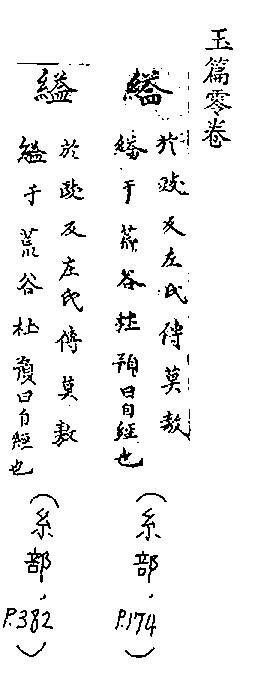 玉篇零卷
縊
於豉反左氏傳莫敖
縊于荒谷杜預曰自經也
(糸部, P.174)
縊
於豉反左氏傳莫敖
縊于荒谷杜預曰自經也
(糸部, P.382)